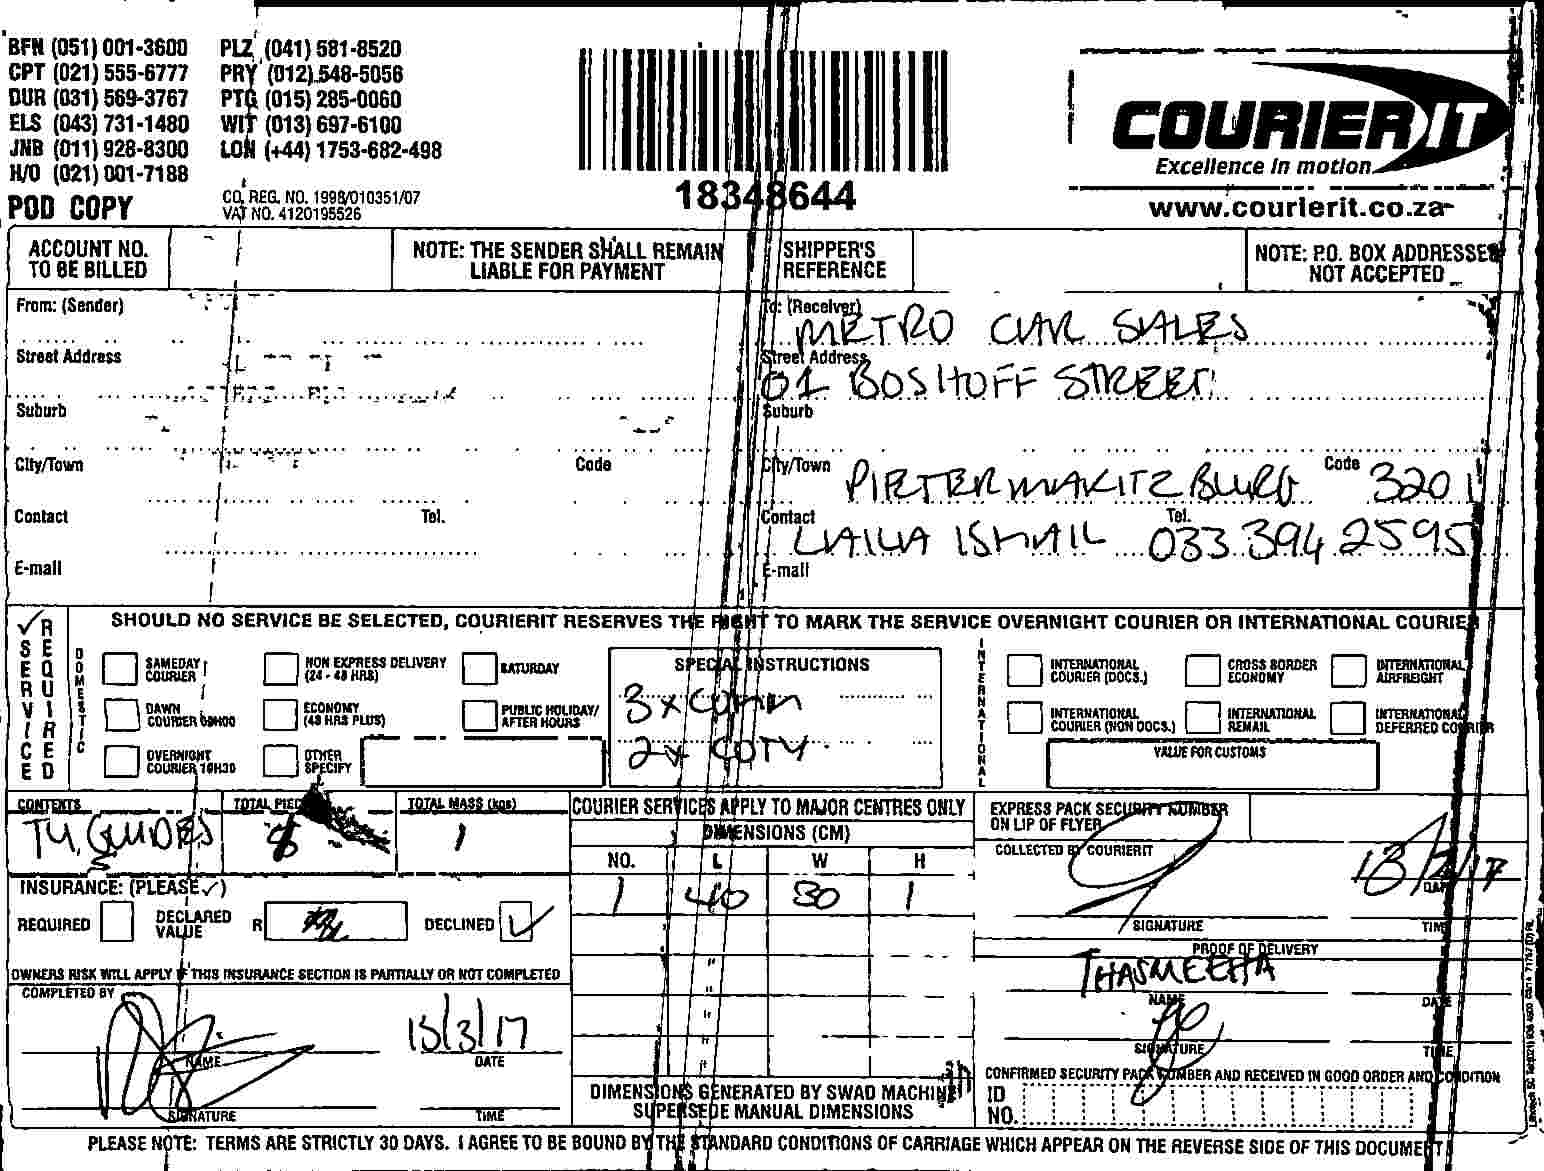 BFN (051) 001-3600 PLZ (041) 581-8520
CPT (021) 555-6777 PRY (012) 548-5056
DUR (031) 569-3767 PTG (015) 285-0060
ELS (043) 731-1480 WIT (013) 697-6100
JNB (011) 928-8300 LON (+44) 1753-682-498
H/O (021) 001-7188
POD COPY
CO. REG. NO. 1998/010351/07
VAT NO. 4120195526
18348644
COURIER IT
Excellence in motion
www.courierit.co.za
ACCOUNT NO. TO BE BILLED
NOTE: THE SENDER SHALL REMAIN LIABLE FOR PAYMENT
SHIPPER'S REFERENCE
NOTE: P.O. BOX ADDRESSES NOT ACCEPTED
From: (Sender)
Street Address
Suburb
City/Town Code
Contact Tel.
E-mail
To: (Receiver) METRO CAR SALES
Street Address 01 BOSHOFF STREET
Suburb
City/Town PIETERMARITZBURG Code 3201
Contact LAILA ISMAIL Tel. 033 394 2595
E-mail
SERVICE REQUIRED
SHOULD NO SERVICE BE SELECTED, COURIERIT RESERVES THE RIGHT TO MARK THE SERVICE OVERNIGHT COURIER OR INTERNATIONAL COURIER
DOMESTIC
SAMEDAY COURIER
NON EXPRESS DELIVERY (24 - 48 HRS)
SATURDAY
DAWN COURIER 09H00
ECONOMY (48 HRS PLUS)
PUBLIC HOLIDAY/ AFTER HOURS
OVERNIGHT COURIER 10H30
OTHER SPECIFY
SPECIAL INSTRUCTIONS
3 x
2 x COTY
INTERNATIONAL
INTERNATIONAL COURIER (DOCS.)
CROSS BORDER ECONOMY
INTERNATIONAL AIRFREIGHT
INTERNATIONAL COURIER (NON DOCS.)
INTERNATIONAL REMAIL
INTERNATIONAL DEFERRED COURIER
VALUE FOR CUSTOMS
CONTENTS
GUIDES
TOTAL
TOTAL MASS (kgs)
1
INSURANCE: (PLEASE ✓)
REQUIRED
DECLARED VALUE R
DECLINED ✓
OWNERS RISK WILL APPLY IF THIS INSURANCE SECTION IS PARTIALLY OR NOT COMPLETED
COMPLETED BY
13/3/17
NAME DATE
SIGNATURE TIME
COURIER SERVICES APPLY TO MAJOR CENTRES ONLY
DIMENSIONS (CM)
NO. L W H
1 40 30 1
DIMENSIONS GENERATED BY SWAD MACHINE
SUPERSEDE MANUAL DIMENSIONS
EXPRESS PACK SECURITY NUMBER ON LIP OF FLYER
COLLECTED BY COURIERIT
DATE
SIGNATURE TIME
PROOF OF DELIVERY
THASMEEHA
NAME DATE
SIGNATURE TIME
CONFIRMED SECURITY PACK NUMBER AND RECEIVED IN GOOD ORDER AND CONDITION
ID NO.
PLEASE NOTE: TERMS ARE STRICTLY 30 DAYS. I AGREE TO BE BOUND BY THE STANDARD CONDITIONS OF CARRIAGE WHICH APPEAR ON THE REVERSE SIDE OF THIS DOCUMENT